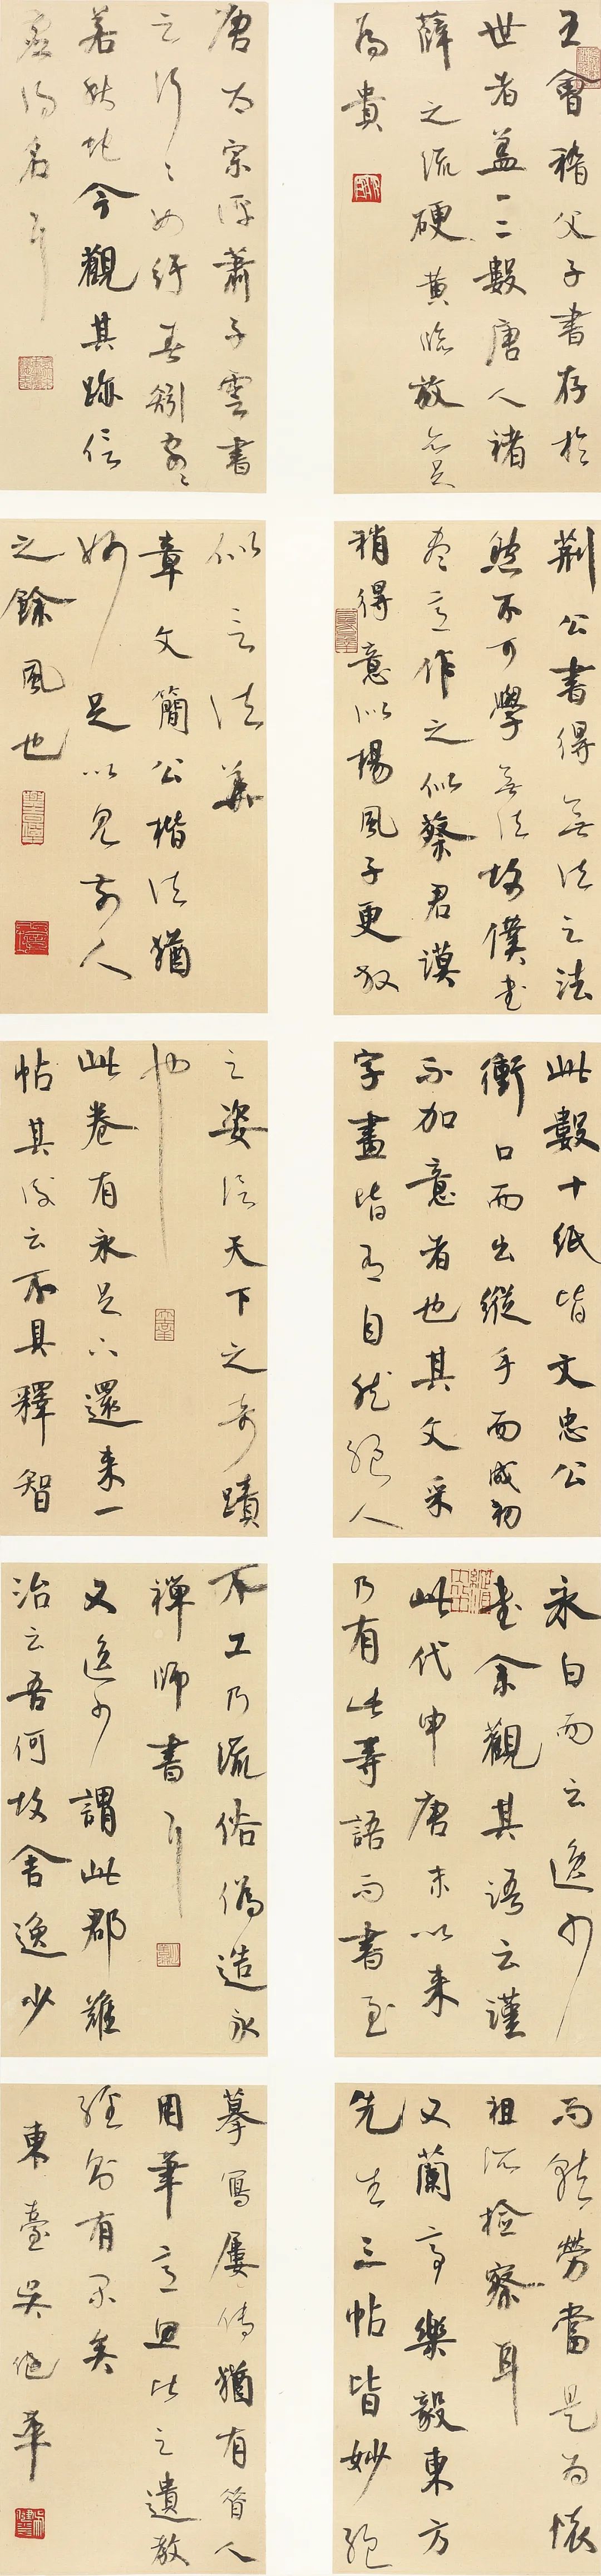 王會稽父子書存於
世者蓋一二數唐人褚
薛之流硬黃臨放亦足
為貴
唐太宗評蕭子雲書
云行行如紆春蚓字字
若秋蛇今觀其跡信
虛得名耳
荊公書得無法之法
然不可學無法故僕書
盡意作之似蔡君謨
稍得意似楊風子更放
似言法華
章文簡公楷法猶
妙足以見前人
之餘風也
此數十紙皆文忠公
衝口而出縱手而成初
不加意者也其文采
字畫皆有自然絕人
之姿信天下之奇蹟
也
此卷有永足下還來一
帖其後云不具釋智
永白而云逸少
書余觀其語云謹
此代申唐末以來
乃有此等語而書至
不工乃流俗偽造永
禪師書耳
又逸少謂此郡難
治云吾何故舍逸少
而就勞當是為懷
祖所檢察耳
又蘭亭樂毅東方
先生三帖皆妙絕
摹寫屢傳猶有昔人
用筆意思比之遺教
經則有間矣
東臺吳健華